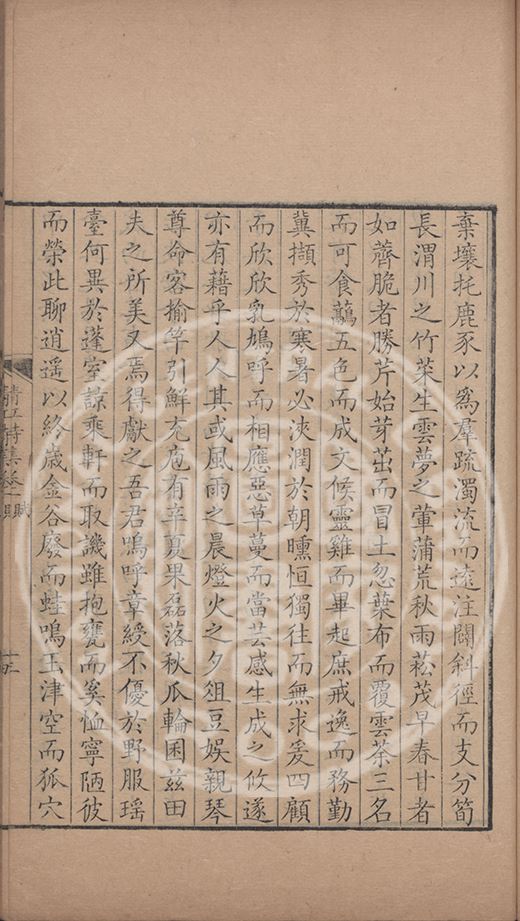 棄壤托鹿豕以爲羣疏濁流而遠注闢斜徑而支分筍
長渭川之竹菜生雲夢之蕫蒲荒秋雨菘茂早春甘者
如薺脆者勝芹始芽茁而冒土忽葉布而覆雲茶三名
而可食蘤五色而成文候靈雞而畢起庶戒逸而務勤
冀擷秀於寒暑必浹潤於朝曛恒獨往而無求爰四顧
而欣欣乳鳩呼而相應惡草蔓而當芸感生成之攸遂
亦有藉乎人人其或風雨之晨燈火之夕俎豆娛親琴
尊命客揄竿引鮮充庖有辛夏果磊落秋瓜輪囷茲田
夫之所美又焉得獻之吾君嗚呼章綬不優於野服瑶
臺何異於蓬室諒乘軒而取譏雖抱甕而奚恤寧陋彼
而榮此聊逍遥以終歲金谷廢而蛙鳴玉津空而狐穴
清江詩集卷一 賦